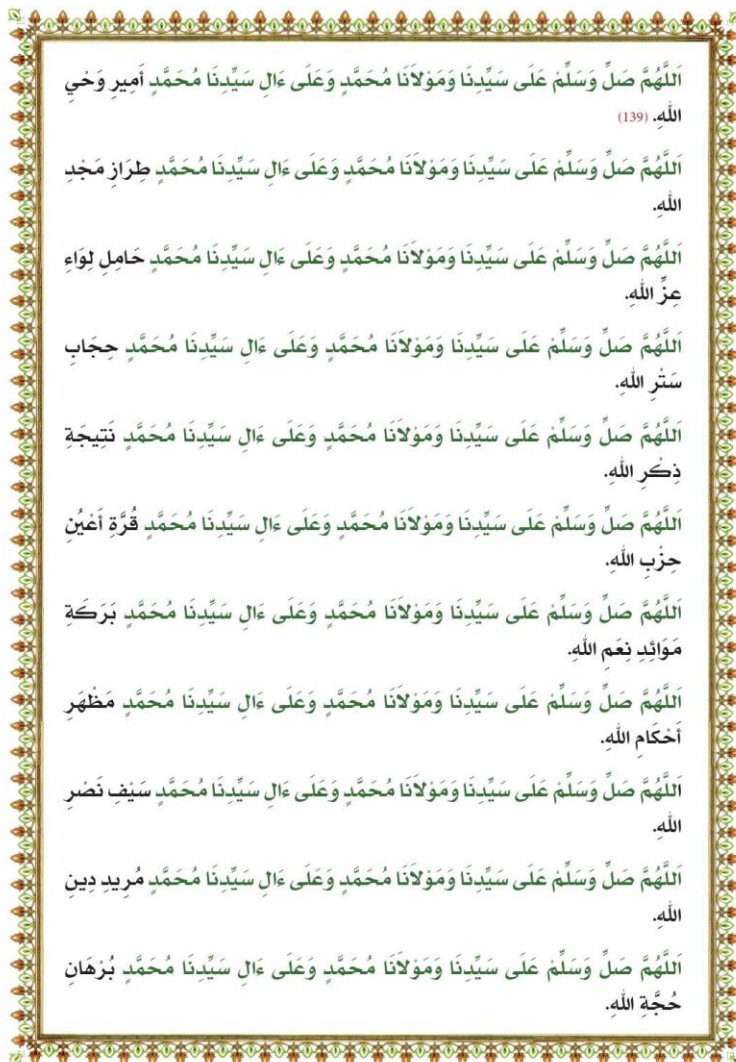 اَللَّهُمَّ صَلِّ وَسَلِّمْ عَلَى سَيِّدِنَا وَمَوْلاَنَا مُحَمَّدٍ وَعَلَى ءَالِ سَيِّدِنَا مُحَمَّدٍ أَمِيرِ وَحْيِ
اللهِ. (139)
اَللَّهُمَّ صَلِّ وَسَلِّمْ عَلَى سَيِّدِنَا وَمَوْلاَنَا مُحَمَّدٍ وَعَلَى ءَالِ سَيِّدِنَا مُحَمَّدٍ طِرَازِ مَجْدِ
اللهِ.
اَللَّهُمَّ صَلِّ وَسَلِّمْ عَلَى سَيِّدِنَا وَمَوْلاَنَا مُحَمَّدٍ وَعَلَى ءَالِ سَيِّدِنَا مُحَمَّدٍ حَامِلِ لِوَاءِ
عِزِّ اللهِ.
اَللَّهُمَّ صَلِّ وَسَلِّمْ عَلَى سَيِّدِنَا وَمَوْلاَنَا مُحَمَّدٍ وَعَلَى ءَالِ سَيِّدِنَا مُحَمَّدٍ حِجَابِ
سَتْرِ اللهِ.
اَللَّهُمَّ صَلِّ وَسَلِّمْ عَلَى سَيِّدِنَا وَمَوْلاَنَا مُحَمَّدٍ وَعَلَى ءَالِ سَيِّدِنَا مُحَمَّدٍ نَتِيجَةِ
ذِكْرِ اللهِ.
اَللَّهُمَّ صَلِّ وَسَلِّمْ عَلَى سَيِّدِنَا وَمَوْلاَنَا مُحَمَّدٍ وَعَلَى ءَالِ سَيِّدِنَا مُحَمَّدٍ قُرَّةِ أَعْيُنِ
حِزْبِ اللهِ.
اَللَّهُمَّ صَلِّ وَسَلِّمْ عَلَى سَيِّدِنَا وَمَوْلاَنَا مُحَمَّدٍ وَعَلَى ءَالِ سَيِّدِنَا مُحَمَّدٍ بَرَكَةِ
مَوَائِدِ نِعَمِ اللهِ.
اَللَّهُمَّ صَلِّ وَسَلِّمْ عَلَى سَيِّدِنَا وَمَوْلاَنَا مُحَمَّدٍ وَعَلَى ءَالِ سَيِّدِنَا مُحَمَّدٍ مَظْهَرِ
أَحْكَامِ اللهِ.
اَللَّهُمَّ صَلِّ وَسَلِّمْ عَلَى سَيِّدِنَا وَمَوْلاَنَا مُحَمَّدٍ وَعَلَى ءَالِ سَيِّدِنَا مُحَمَّدٍ سَيْفِ نَصْرِ
اللهِ.
اَللَّهُمَّ صَلِّ وَسَلِّمْ عَلَى سَيِّدِنَا وَمَوْلاَنَا مُحَمَّدٍ وَعَلَى ءَالِ سَيِّدِنَا مُحَمَّدٍ مُرِيدِ دِينِ
اللهِ.
اَللَّهُمَّ صَلِّ وَسَلِّمْ عَلَى سَيِّدِنَا وَمَوْلاَنَا مُحَمَّدٍ وَعَلَى ءَالِ سَيِّدِنَا مُحَمَّدٍ بُرْهَانِ
حُجَّةِ اللهِ.